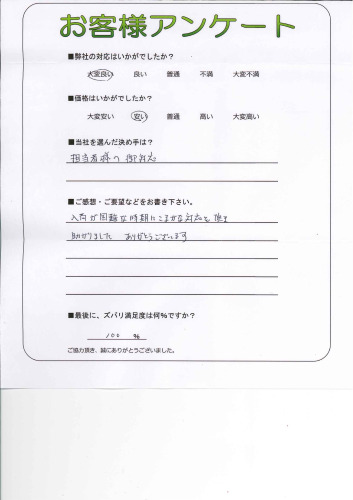 お客様アンケート
■弊社の対応はいかがでしたか?
大変良い 良い 普通 不満 大変不満
■価格はいかがでしたか?
大変安い 安い 普通 高い 大変高い
■当社を選んだ決め手は?
担当者様の御対応
■ご感想・ご要望などをお書き下さい。
入荷が困難な時期にこまかな対応を頂き
助かりました ありがとうございます
■最後に、ズバリ満足度は何%ですか?
100 %
ご協力頂き、誠にありがとうございました。